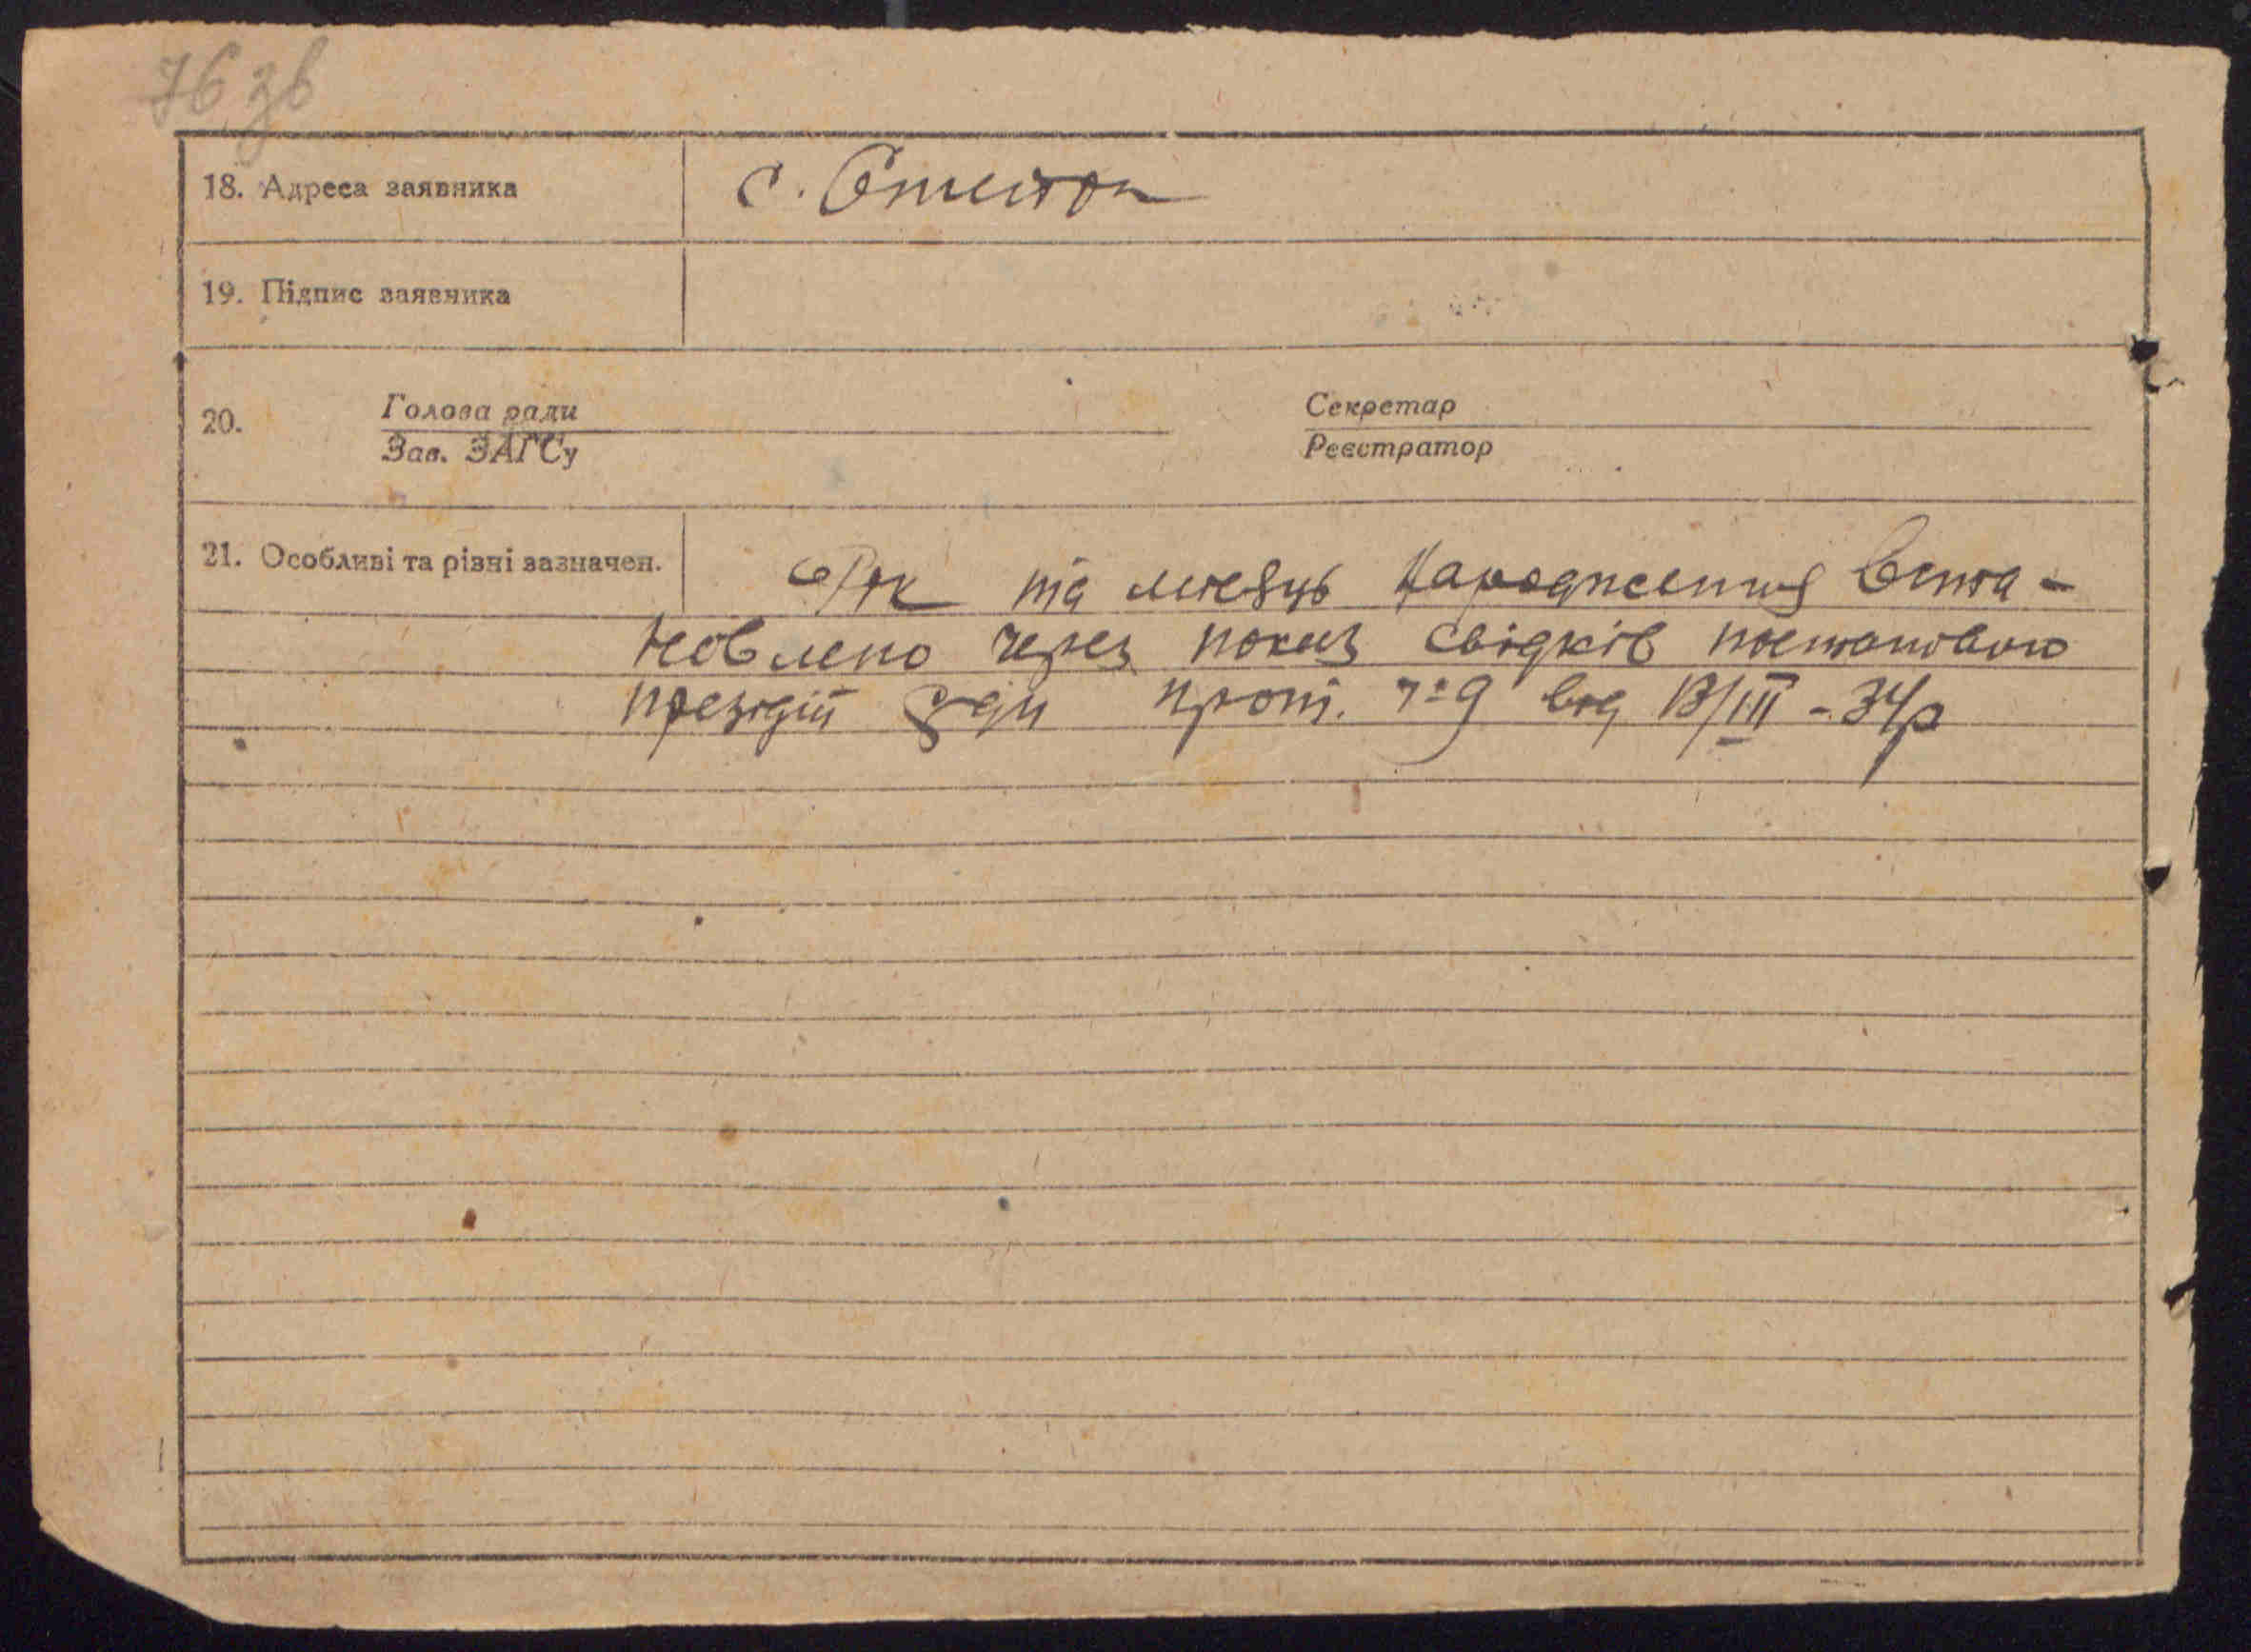 76 зв
18. Адреса заявника с.
19. Підпис заявника
20. Голова ради Секретар
Зав. ЗАГСу Реєстратор
21. Особливі та різні зазначен. Рік та місяць народження вста-
новлено через показ свідків постановою
президії ради прот. №9 від 13/III - 34р